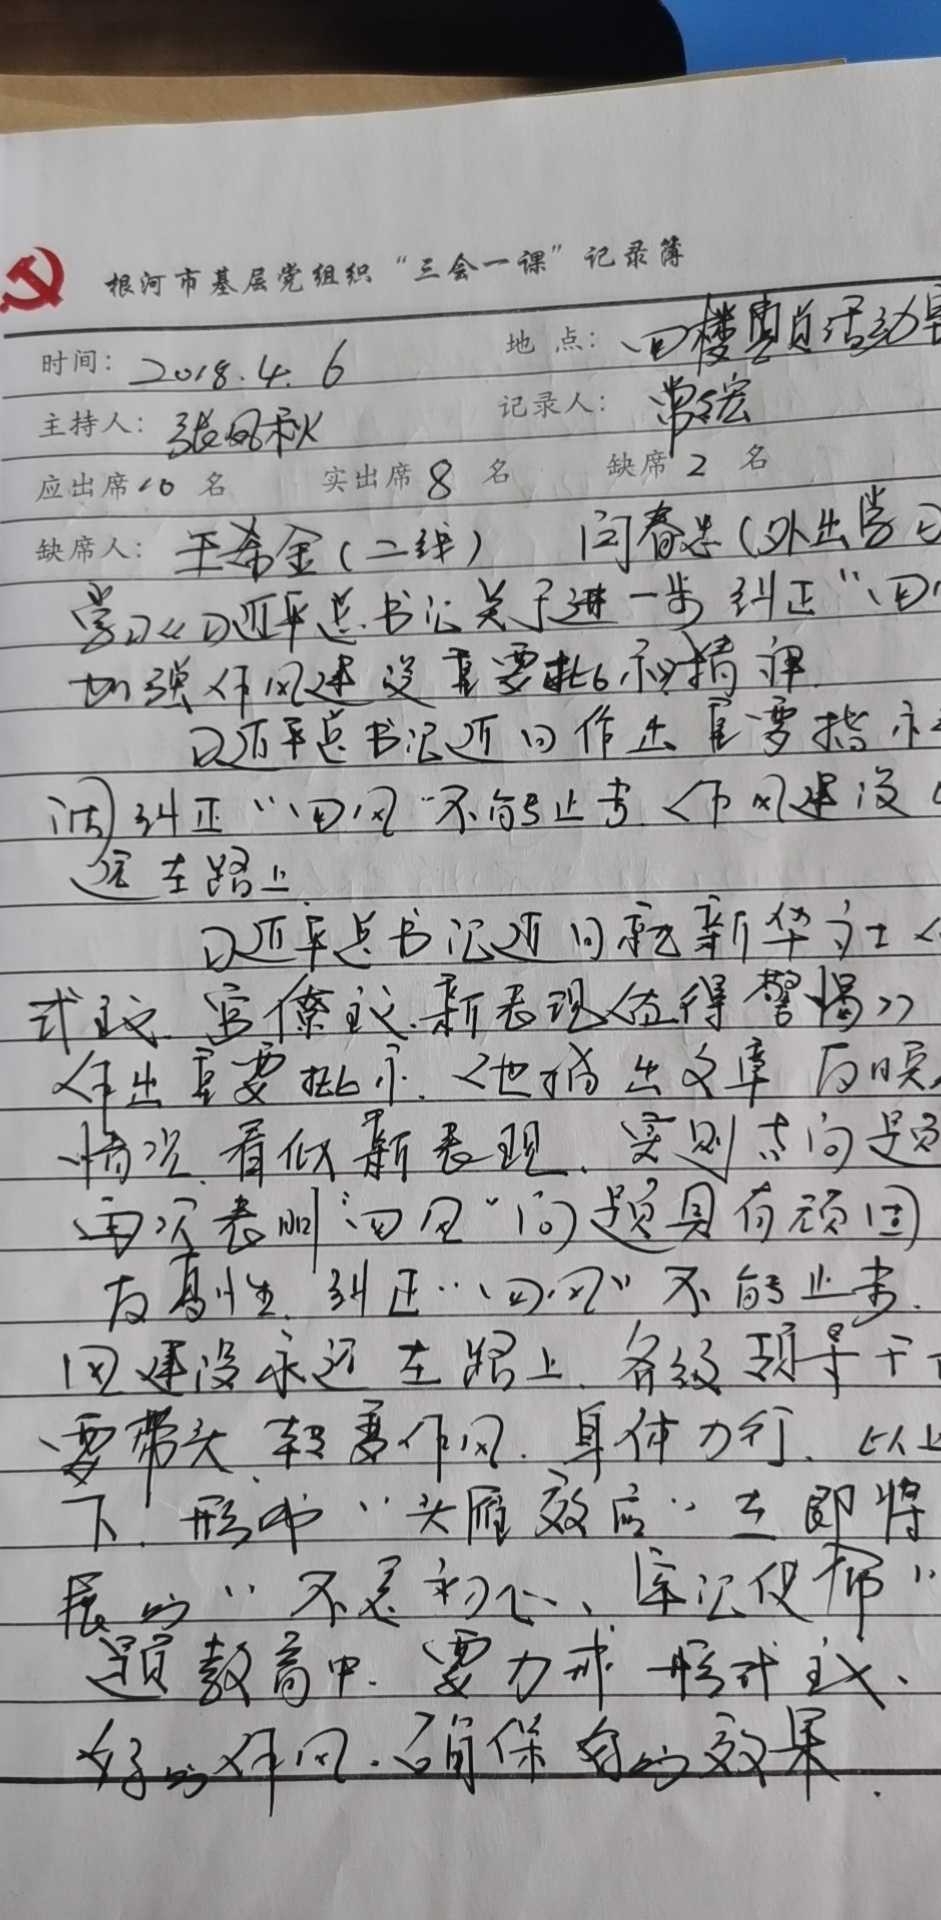 根河市基层党组织“三会一课”记录簿
时间: 2018.4.6 地点: 四楼党员活动
主持人: 张凤秋 记录人: 常宏
应出席10名 实出席8名 缺席2名
缺席人: 王希金(二线) 闫春忠(外出学习
学习《习近平总书记关于进一步纠正“四
加强作风建设重要批示精神
习近平总书记近日作出重要指示
调纠正“四风”不能止步 作风建设
远在路上
习近平总书记近日就新华社
式主义、官僚主义新表现值得警惕》
作出重要批示. 他指出文章反映
情况 看似新表现、实则老问题
再次表明“四风”问题具有顽固
反复性 纠正“四风”不能止步.
风建设永远在路上. 各级领导干
要带头 转变作风. 身体力行. 以上
下. 形成“头雁效应” 在即将
展的“不忘初心、牢记使命”
题教育中. 要力戒形式主义、
好的作风. 确保好的效果.